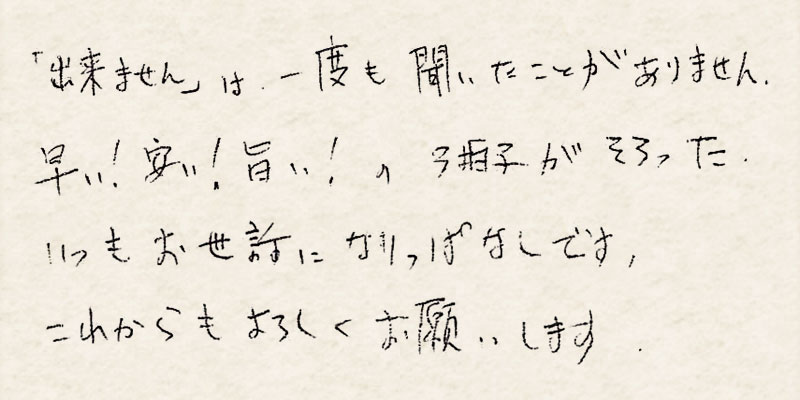 「出来ません」は、一度も聞いたことがありません.
早い！安い！旨い！の3拍子がそろった.
いつもお世話になりっぱなしです,
これからもよろしくお願いします.